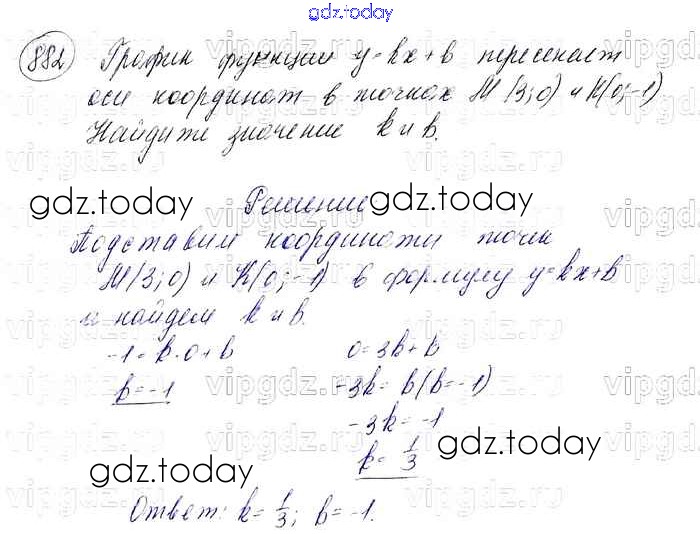 gdz.today
882 График функции y=kx+b пересекает
оси координат в точках M(3;0) и K(0;-1)
Найдите значение k и b.
gdz.today Решение gdz.today
Подставим координаты точек
M(3;0) и K(0;-1) в формулу y=kx+b
и найдем k и b.
-1=k·0+b 0=3k+b
b=-1 -3k=b (b=-1)
-3k=-1
k=1/3 gdz.today
gdz.today
Ответ: k=1/3; b=-1.